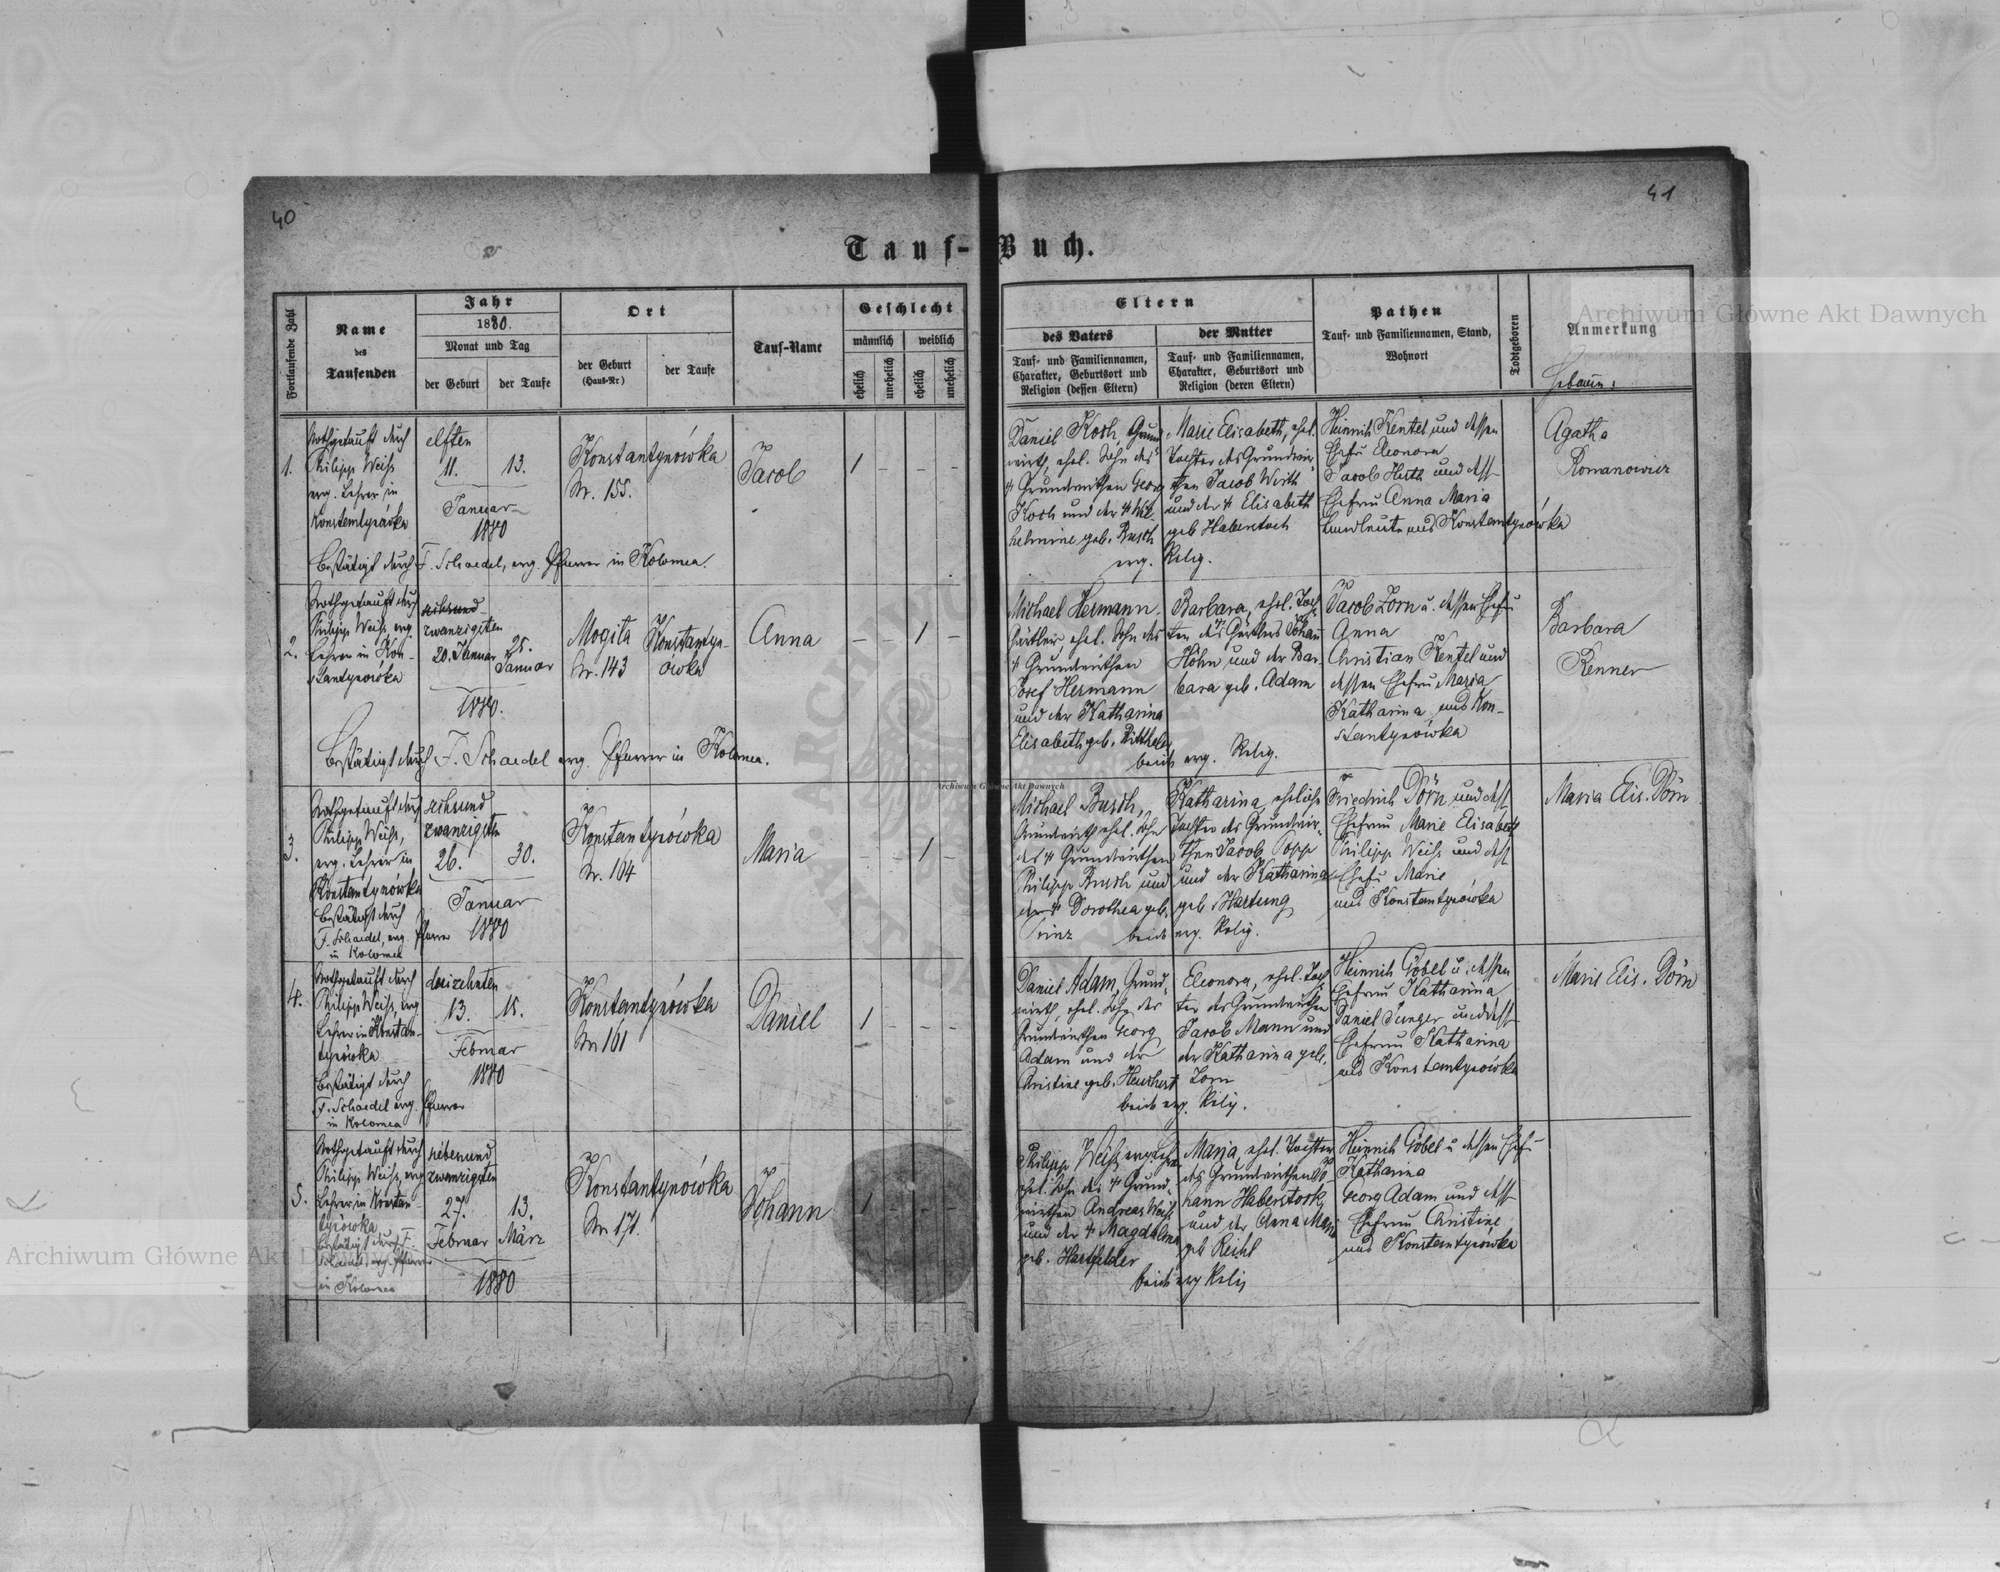 40
41
Tauf-Buch.
Fortlaufende Zahl
Name
des
Taufenden
Jahr
1880.
Monat und Tag
der Geburt
der Taufe
Ort
der Geburt
(Haus-Nr)
der Taufe
Tauf-Name
Geschlecht
männlich
weiblich
ehelich
unehelich
ehelich
unehelich
Eltern
des Vaters
Tauf- und Familiennamen,
Charakter, Geburtsort und
Religion (dessen Eltern)
der Mutter
Tauf- und Familiennamen,
Charakter, Geburtsort und
Religion (deren Eltern)
Pathen
Tauf- und Familiennamen, Stand,
Wohnort
Todtgeboren
Anmerkung
1.
Nothgetauft durch
Philipp Weihs
evg. Lehrer in
Konstantynówka
elften
11.
13.
Januar
1880
Konstantynówka
Nr. 155.
Jacob
1 - - -
Daniel Koch, Grund-
wirth, ehel. Sohn des
Grundwirthen Georg
Koch und der Wil-
helmine geb. Busch
Marie Elisabeth, ehel.
Tochter des Grundwir-
then Jacob Wirth
und der Elisabeth
geb. Haberstock
evg. Relig.
Heinrich Kentel und dessen
Ehefrau Eleonora
Jacob Huth und dess
Ehefrau Anna Maria
Landleute aus Konstantynówka
Agatha
Romanowicz
Bestätigt durch F. Schaedel, evg. Pfarrer in Kolomea.
2.
Nothgetauft durch
Philipp Weihs evg.
Lehrer in Kon-
stantynówka
zwanzigsten
20. Januar
25.
Januar
1880.
Mogila
Nr. 143
Konstantyn-
ówka
Anna
- - 1 -
Michael Hermann
Gärtler, ehel. Sohn des
Grundwirthen
Josef Hermann
und der Katharina
Elisabeth geb.
Barbara, ehel. Toch-
ter des Gärtlers Johann
Höhn und der Bar-
bara geb. Adam
beide evg. Relig.
Jacob Zorn u. dessen Ehefr
Anna
Christian Kentel und
dessen Ehefr Maria
Katharina aus Kon-
stantynówka
Barbara
Renner
Bestätigt durch F. Schaedel evg. Pfarrer in Kolomea.
3.
Nothgetauft durch
Philipp Weihs,
evg. Lehrer in
Konstantynówka
Bestätigt durch
F. Schaedel, evg. Pfarrer
in Kolomea
sechsund
zwanzigsten
26.
30.
Januar
1880
Konstantynówka
Nr. 104
Maria
- - 1 -
Michael Busch,
Grundwirth ehel. Sohn
des Grundwirthen
Philipp Busch und
der Dorothea geb.
Prinz
Katharina, eheliche
Tochter des Grundwir-
then Jacob Popp
und der Katharina
geb. Hartung
beide evg. Relig.
Friedrich Dörn und dess
Ehefrau Marie Elisabeth
Philipp Weihs und dess
Ehefr Marie
aus Konstantynówka
Maria Elis. Dörn
4.
Nothgetauft durch
Philipp Weihs, evg
Lehrer in Konstan-
tynówka
Bestätigt durch
F. Schaedel evg. Pfarrer
in Kolomea
dreizehnten
13.
15.
Februar
1880
Konstantynówka
Nr. 101
Daniel
1 - - -
Daniel Adam, Grund-
wirth, ehel. Sohn des
Grundwirthen Georg
Adam und der
Christine geb.
Eleonora, ehel. Toch-
ter des Grundwirthen
Jacob Mann und
der Katharina geb.
Zorn
beide evg. Relig.
Heinrich Göbel u. dessen
Ehefrau Katharina
Daniel Junger und dess
Ehefrau Katharina
aus Konstantynówka
Marie Elis. Dörn
5.
Nothgetauft durch
Philipp Weihs, evg
Lehrer in Konstan-
tynówka
Bestätigt durch F.
Schaedel, evg. Pfarrer
in Kolomea
siebenund
zwanzigsten
27.
Februar
13.
März
1880
Konstantynówka
Nr. 171.
Johann
1 - - -
Philipp Weihs, evg. Lehrer
ehel. Sohn des Grund-
wirthen Andreas Weihs
und der Magdalena
geb. Hartfelder
Maria, ehel. Tochter
des Grundwirthen Jo-
hann Haberstock
und der Anna Maria
geb Reichl
beide evg Relig
Heinrich Göbel u dessen Ehefr
Katharina
Georg Adam und dess
Ehefrau Christine
aus Konstantynówka
Archiwum Główne Akt Dawnych
Archiwum Główne Akt Dawnych
Archiwum Główne Akt Dawnych